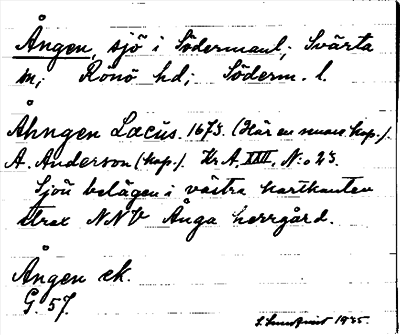 Ången, sjö i Södermanl; Svärta
sn; Rönö hd; Söderm. l.
Åhngen Lacus. 1673. (Här en senare kop.).
A. Anderson (kop.). Kr.A. XXII, N:o 23.
Sjön belägen i västra kartkanten
strax NNV Ånga herrgård.
Ången ek.
G. 57.
S. Sundqvist 1935.